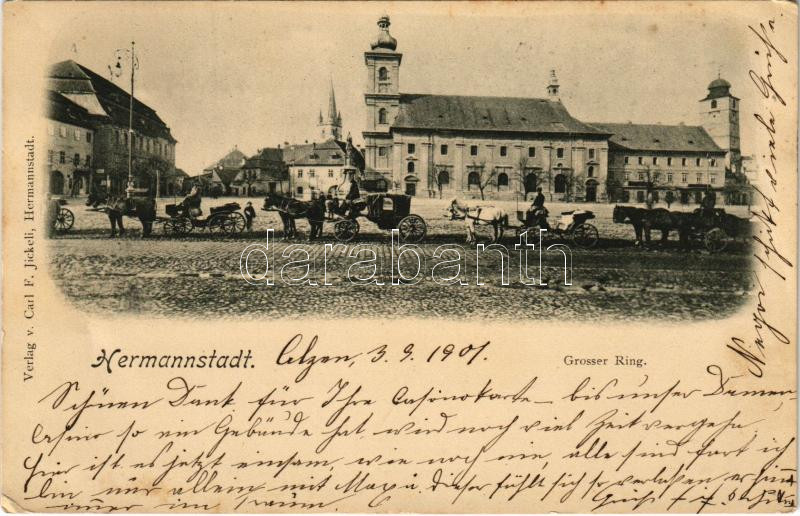 Verlag v. Carl F. Jickeli, Hermannstadt.
darabanth
Hermannstadt.
Grosser Ring.
3. 9. 1901.
Schönen Dank für Ihre Casinokarte – bis unser Damen-
casino so ein Gebäude hat, wird noch viel Zeit vergehn.
Hier ist es jetzt einsam, wie noch nie, alle sind fort ich
bin nur allein mit dieser fühlt sich so verlassen
im Traum.
viele Grüße